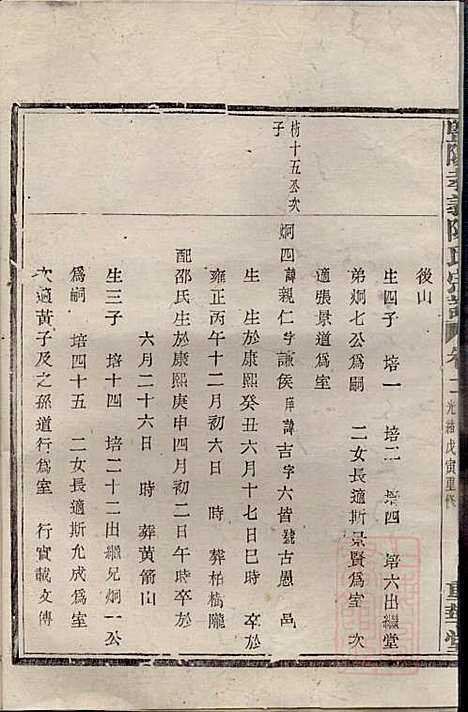 暨陽孝義陳氏宗譜 卷二 光緒戊寅重修 重華堂
後山
生四子 培一 培二 培四 培六出繼堂
弟炯七公爲嗣 二女長適斯景賢爲室 次
適張景道爲室
枋十五公次子
炯四諱親仁字謙侯庠諱吉字六皆號古愚 邑
生 生於康熙癸丑六月十七日巳時 卒於
雍正丙午十二月初六日 時 葬柏槝隴
配邵氏生於康熙庚申四月初二日午時卒於
六月二十六日 時 葬黄箭山
生三子 培十四 培二十二出繼兄炯一公
爲嗣 培四十五 二女長適斯允成爲室
次適黃子及之孫道行爲室 行實載文傳